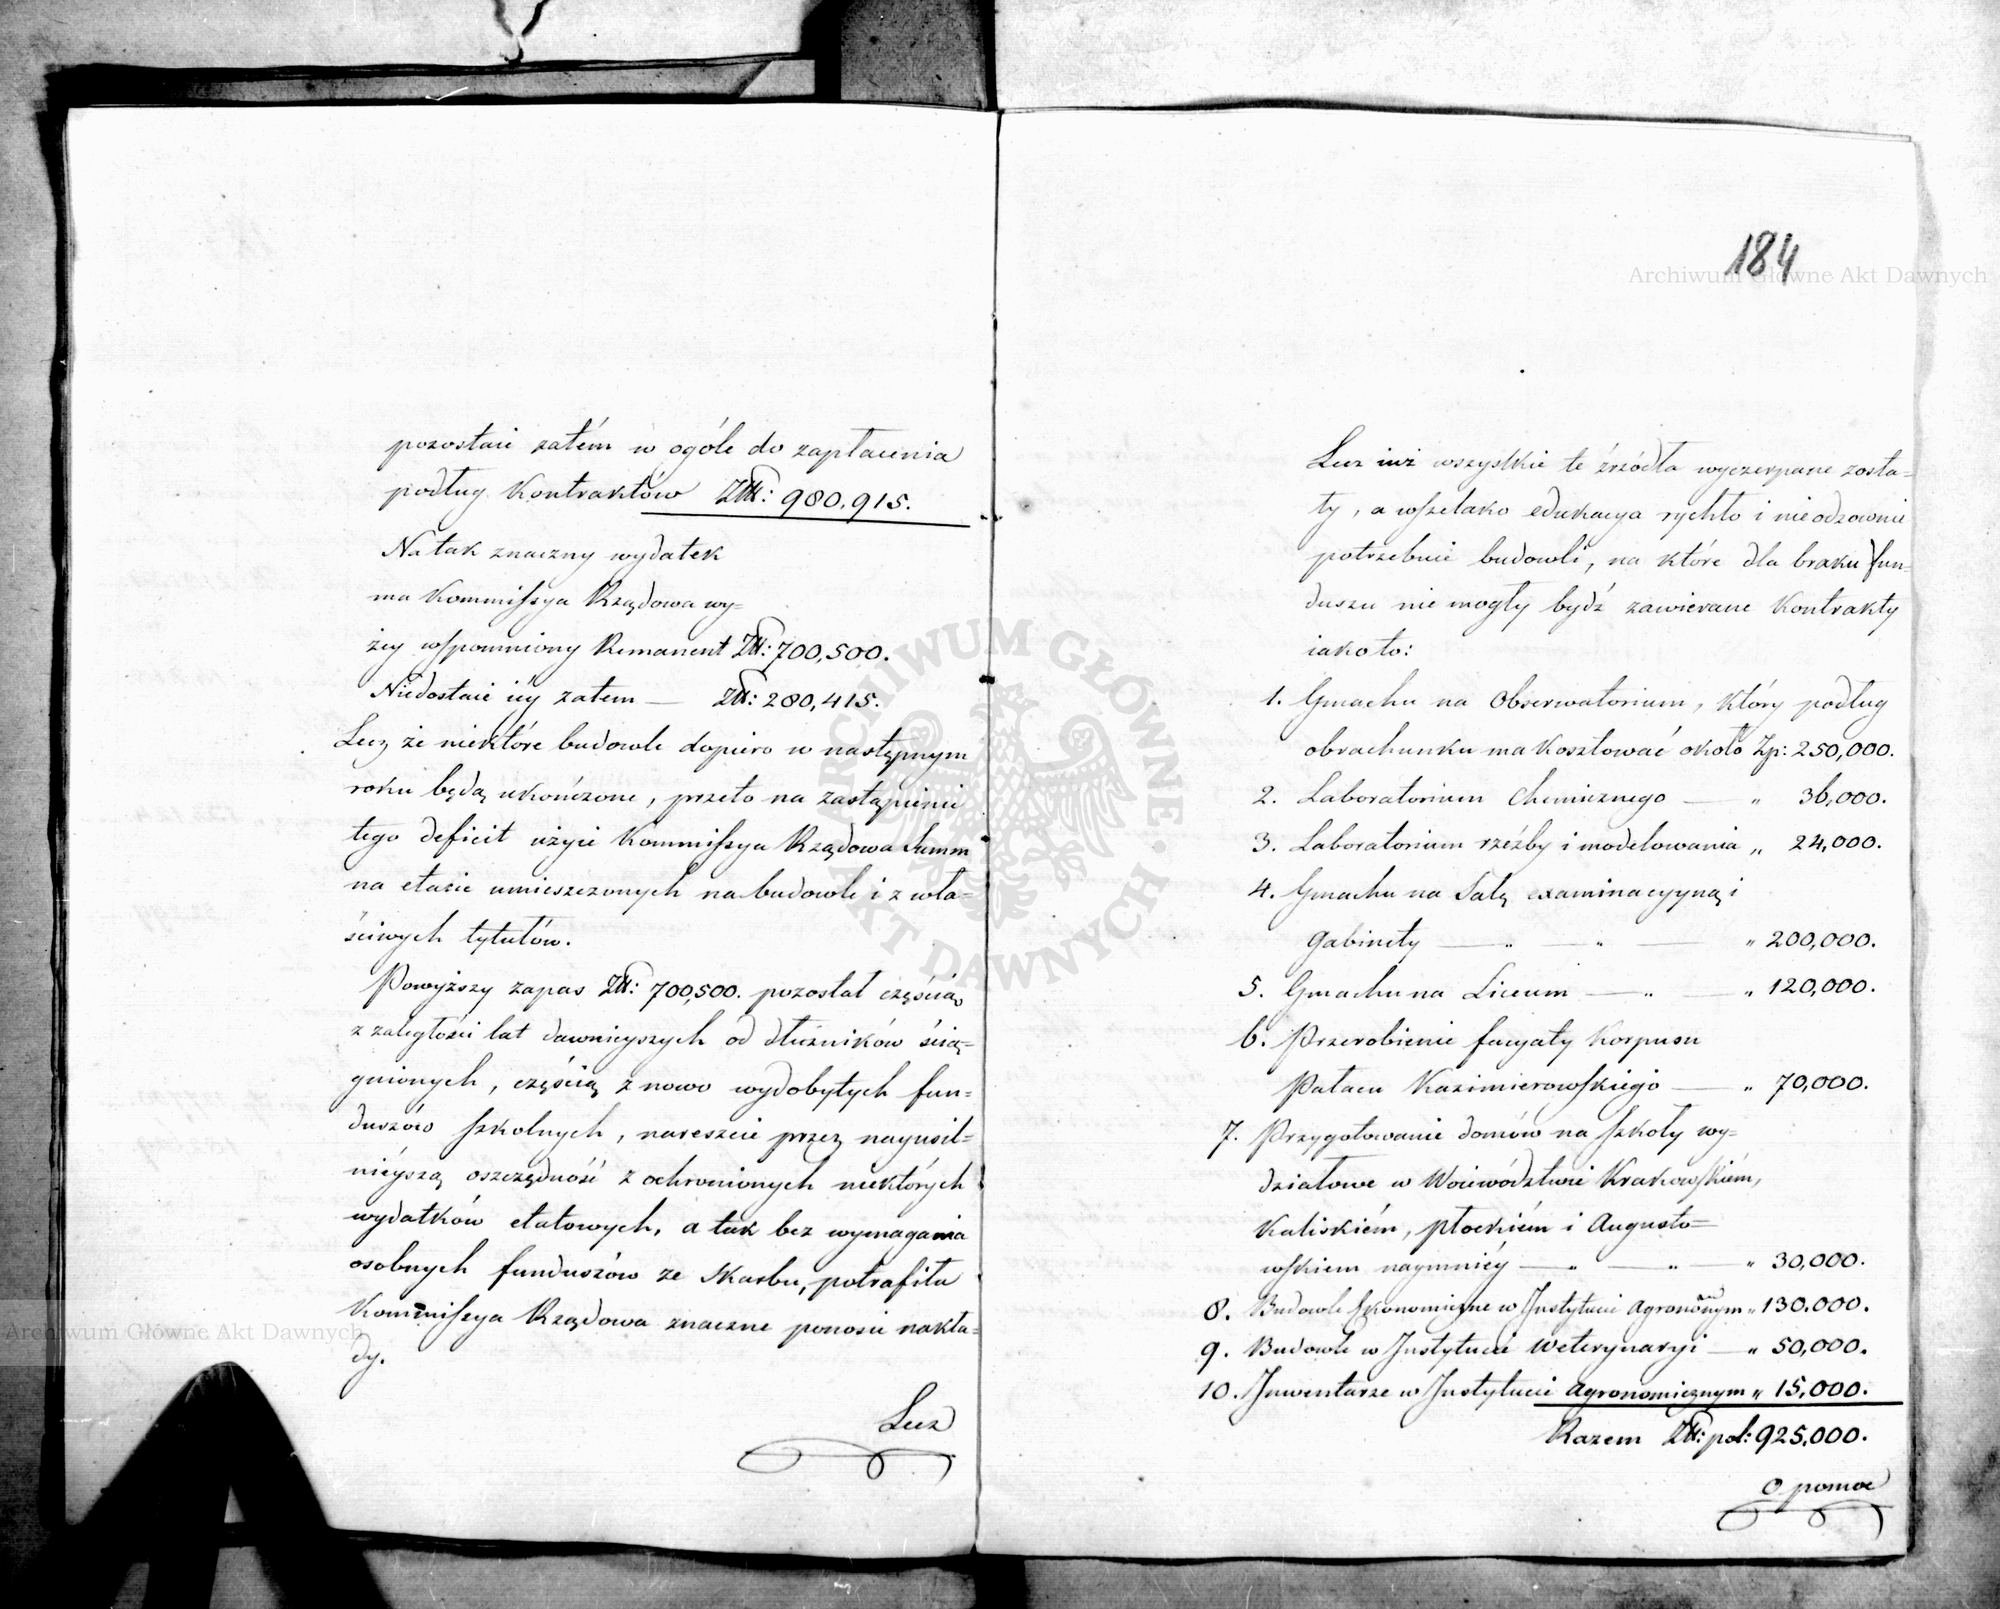 pozostaie zatém w ogóle do zapłacenia
podług Kontraktów Złł: 980,915.
Na tak znaczny wydatek
ma Kommissya Rządowa wy=
żey wspomniony Remanent Złł: 700,500.
Niedostaie iéy zatem — Złł: 280,415.
Lecz że niektóre budowle dopiero w następnym
roku będą ukończone, przeto na zastąpienie
tego deficit użyie Kommissya Rządowa Summ
na etacie umieszczonych na budowle i z wła=
ściwych tytułów.
Powyższy zapas Złł: 700,500. pozostał częścią
z zaległości lat dawnieyszych od dłużników ścią=
gnionych, częścią z nowo wydobytych fun=
duszów szkolnych, nareszcie przez nayusil=
niéyszą oszczędność z ochronionych niektórych
wydatków etatowych, a tak bez wymagania
osobnych funduszów ze Skarbu, potrafiła
Kommissya Rządowa znaczne ponosić nakła=
dy.
Lecz
184
Lecz iuż wszystkie te źrzódła wyczerpane zosta=
ły, a wszelako edukacya rychło i nieodzownie
potrzebuie budowli, na które dla braku fun=
duszu nie mogły bydź zawierane Kontrakty
iako to:
1. Gmachu na Obserwatorium, który podług
obrachunku ma kosztować około Złp: 250,000.
2. Laboratorium Chemicznego — „ 36,000.
3. Laboratorium rzeźby i modelowania „ 24,000.
4. Gmachu na Salę examinacyyną i
Gabinety — „ — „ — „ 200,000.
5. Gmachu na Liceum — „ — „ 120,000.
6. Przerobienie facyaty Korpusu
Pałacu Kazimierowskiego — „ 70,000.
7. Przygotowanie domów na szkoły wy=
działowe w Woiewództwie Krakowskiém,
Kaliskiém, Płockiém i Augusto=
wskiem naymniéy — „ — „ — „ 30,000.
8. Budowle Ekonomiczne w Instytucie Agronomicznym „ 130.000.
9. Budowle w Instytucie Weterynaryi — „ 50,000.
10. Inwentarze w Instytucie Agronomicznym „ 15,000.
Razem Złł: pol: 925,000.
O pomoc
Archiwum Główne Akt Dawnych
ARCHIWUM GŁÓWNE AKT DAWNYCH
Archiwum Główne Akt Dawnych